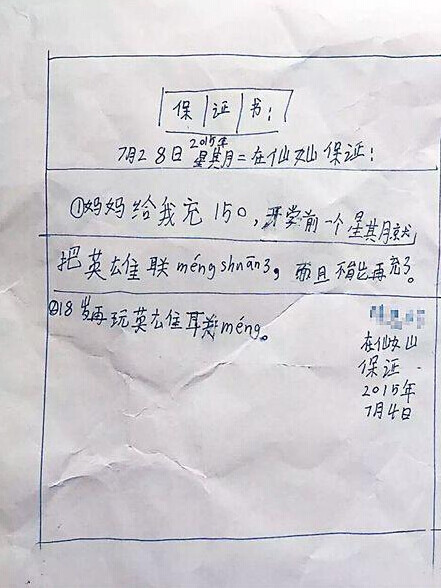 保证书:
2015年
7月28日星其月二在仙女山保证:
①妈妈给我充150,开学前一个星其月就
把英雄联méng shuān3,而且不能再充了。
②18岁再玩英雄联méng。
在仙女山
保证
2015年
7月4日